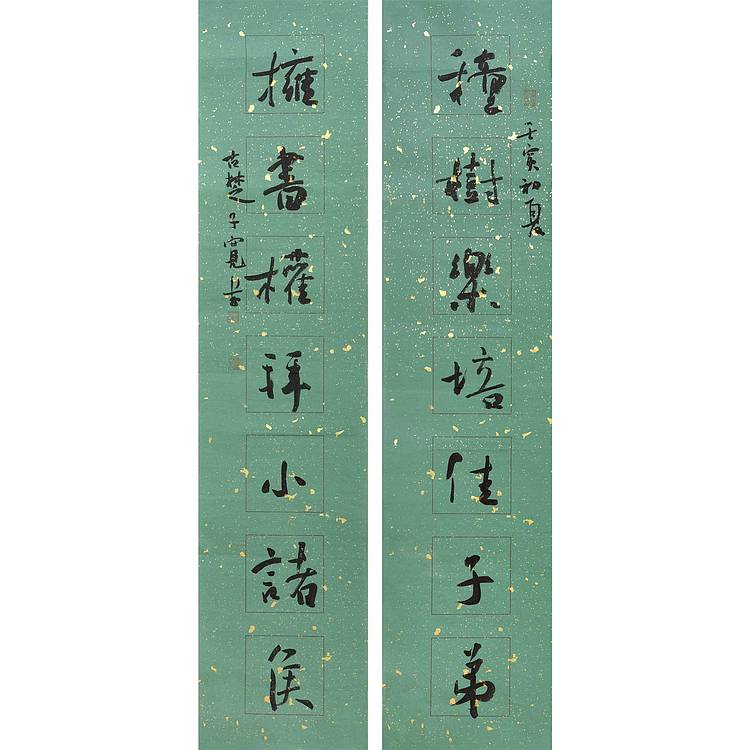 壬寅初夏
種樹樂培佳子弟
擁書權拜小諸侯
古楚子寬書